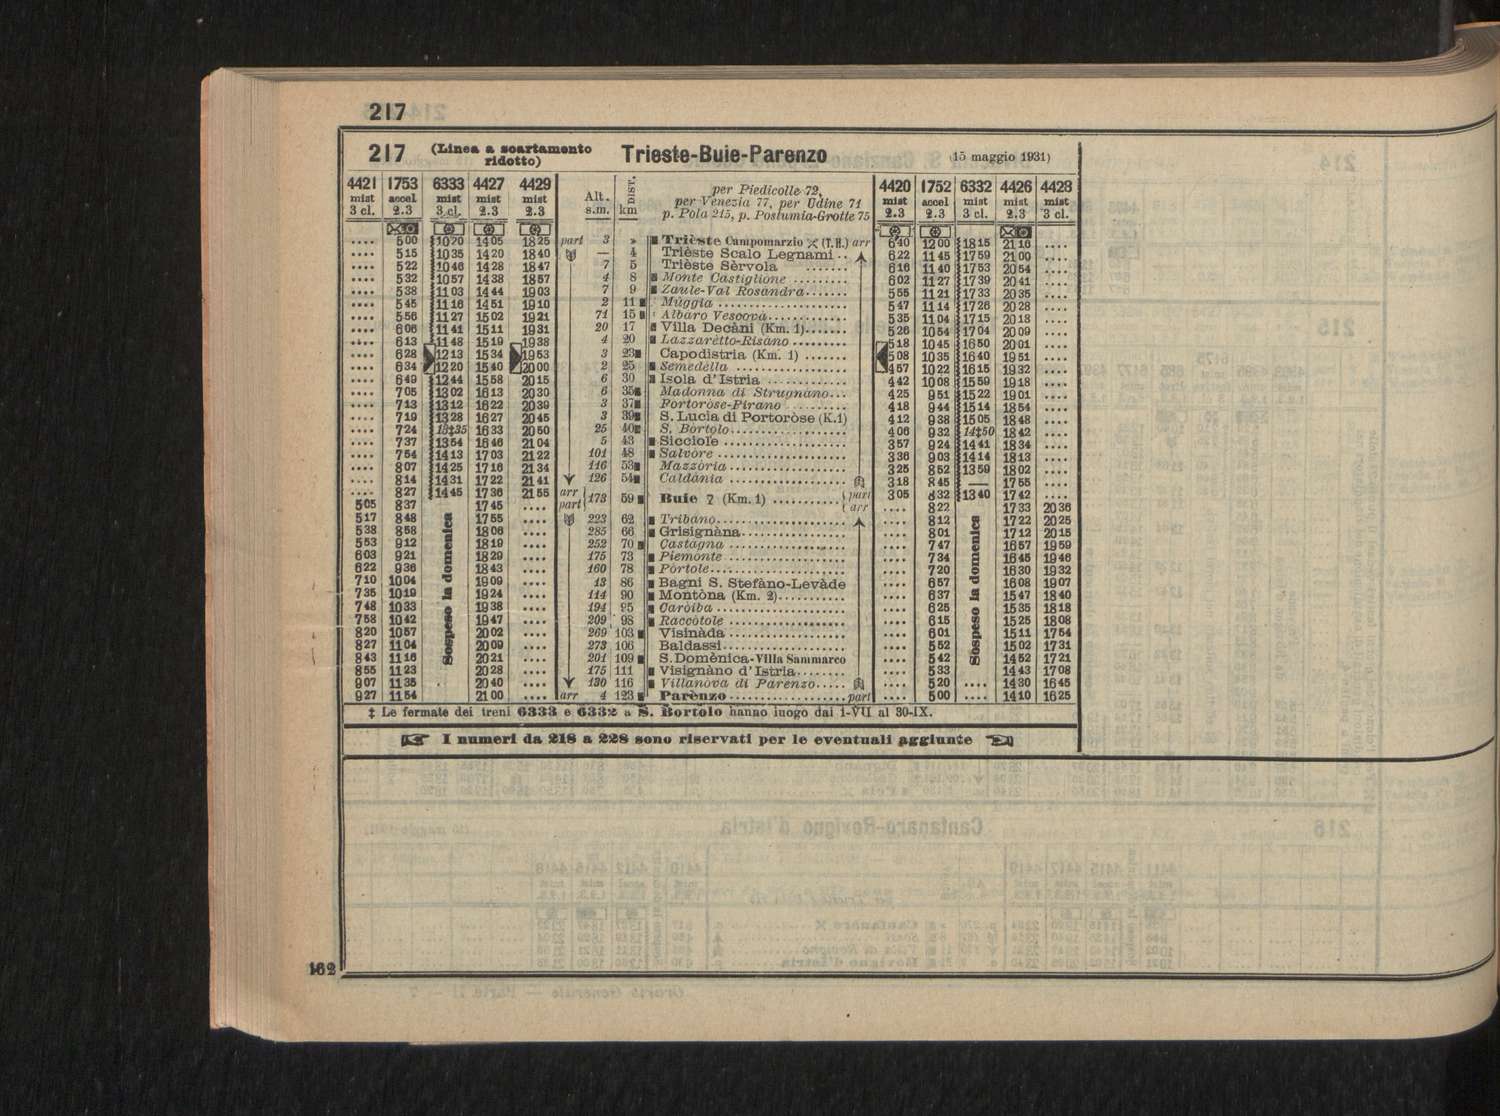 217
217 (Linea a scartamento ridotto) Trieste-Buie-Parenzo (15 maggio 1931)
4421 1753 6333 4427 4429 Alt. s.m. DIST. km per Piedicolle 72, 4420 1752 6332 4426 4428
mist accel mist mist mist per Venezia 77, per Udine 71 mist accel mist mist mist
3 cl. 2.3 3 cl. 2.3 2.3 p. Pola 215, p. Postumia-Grotte 75 2.3 2.3 3 cl. 2.3 3 cl.
.... 5 00 10 20 14 05 18 25 part 3 » Trièste Campomarzio (T.H.) arr 6 40 12 00 18 15 21 16 ....
.... 5 15 10 35 14 20 18 40 — 4 Trièste Scalo Legnami .. 6 22 11 45 17 59 21 00 ....
.... 5 22 10 46 14 28 18 47 7 5 Trièste Sèrvola ....... 6 16 11 40 17 53 20 54 ....
.... 5 32 10 57 14 38 18 57 4 8 Monte Castiglione ......... 6 02 11 27 17 39 20 41 ....
.... 5 38 11 03 14 44 19 03 7 9 Zaule-Val Rosandra....... 5 55 11 21 17 33 20 35 ....
.... 5 45 11 16 14 51 19 10 2 11 Mùggia ..................... 5 47 11 14 17 26 20 28 ....
.... 5 56 11 27 15 02 19 21 71 15 Albaro Vescovà............. 5 35 11 04 17 15 20 18 ....
.... 6 06 11 41 15 11 19 31 20 17 Villa Decàni (Km. 1)....... 5 26 10 54 17 04 20 09 ....
.... 6 13 11 48 15 19 19 38 4 20 Lazzarètto-Risano ......... 5 18 10 45 16 50 20 01 ....
.... 6 28 12 13 15 34 19 53 3 23 Capodistria (Km. 1) ....... 5 08 10 35 16 40 19 51 ....
.... 6 34 12 20 15 40 20 00 2 25 Semedèlla .................. 4 57 10 22 16 15 19 32 ....
.... 6 49 12 44 15 58 20 15 6 30 Isola d'Istria ............. 4 42 10 08 15 59 19 18 ....
.... 7 05 13 02 16 13 20 30 6 35 Madonna di Strugnano... 4 25 9 51 15 22 19 01 ....
.... 7 13 13 12 16 22 20 39 3 37 Portoròse-Pirano .......... 4 18 9 44 15 14 18 54 ....
.... 7 19 13 28 16 27 20 45 3 39 S. Lucia di Portoròse (K.1) 4 12 9 38 15 05 18 48 ....
.... 7 24 13‡35 16 33 20 50 25 40 S. Bòrtolo................... 4 06 9 32 14‡50 18 42 ....
.... 7 37 13 54 16 46 21 04 5 43 Sicciole .................... 3 57 9 24 14 41 18 34 ....
.... 7 54 14 13 17 03 21 22 101 48 Salvòre ..................... 3 36 9 03 14 14 18 13 ....
.... 8 07 14 25 17 16 21 34 116 53 Mazzòria ................... 3 25 8 52 13 59 18 02 ....
.... 8 14 14 31 17 22 21 41 126 54 Caldània ................... 3 18 8 45 — 17 55 ....
.... 8 27 14 45 17 36 21 55 arr 173 59 Buie (Km. 1) ........... part 3 05 8 32 13 40 17 42 ....
5 05 8 37 17 45 .... part arr .... 8 22 17 33 20 36
5 17 8 48 17 55 .... 223 62 Tribano..................... .... 8 12 17 22 20 25
5 38 8 58 18 06 .... 285 66 Grisignàna................. .... 8 01 17 12 20 15
5 53 9 12 18 19 .... 252 70 Castagna ................... .... 7 47 16 57 19 59
6 03 9 21 18 29 .... 175 73 Piemonte ................... .... 7 34 16 45 19 46
6 22 9 36 18 43 .... 160 78 Pòrtole...................... .... 7 20 16 30 19 32
7 10 10 04 19 09 .... 13 86 Bagni S. Stefàno-Levàde .... 6 57 16 08 19 07
7 35 10 19 19 24 .... 114 90 Montòna (Km. 2)........... .... 6 37 15 47 18 40
7 48 10 33 19 38 .... 194 95 Caròiba ..................... .... 6 25 15 35 18 18
7 58 10 42 19 47 .... 209 98 Raccòtole ................... .... 6 15 15 25 18 08
8 20 10 57 20 02 .... 269 103 Visinàda ................... .... 6 01 15 11 17 54
8 27 11 04 20 09 .... 273 106 Baldassi.................... .... 5 52 15 02 17 31
8 43 11 16 20 21 .... 201 109 S.Domènica-Villa Sammarco .... 5 42 14 52 17 21
8 55 11 23 20 28 .... 175 111 Visignàno d'Istria......... .... 5 33 14 43 17 08
9 07 11 35 20 40 .... 130 116 Villanòva di Parenzo..... .... 5 20 .... 14 30 16 45
9 27 11 54 21 00 .... arr 4 123 Parènzo................... part .... 5 00 .... 14 10 16 25
Sospeso la domenica
Sospeso la domenica
‡ Le fermate dei treni 6333 e 6332 a S. Bortolo hanno luogo dal 1-VII al 30-IX.
I numeri da 218 a 228 sono riservati per le eventuali aggiunte
162